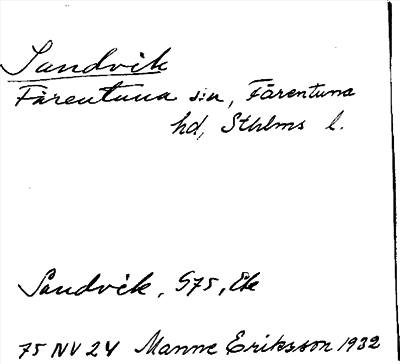 Sandvik
Färentuna sn, Färentuna
hd, Sthlms l.
Sandvik, S75, Ek
75 NV 24 Manne Eriksson 1932